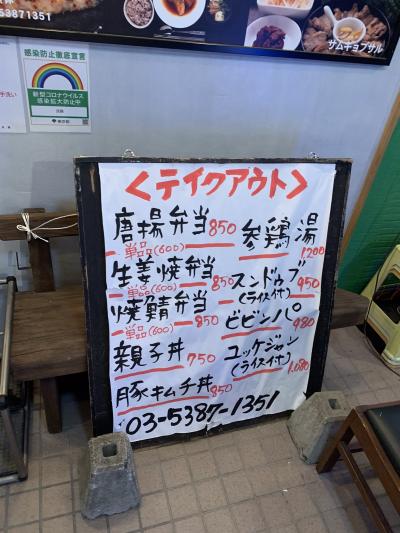 53871351
サムギョプサル
感染防止徹底宣言
新型コロナウイルス
感染拡大防止中
東京都
<テイクアウト>
唐揚弁当850
単品(600)
生姜焼弁当850
単品(600)
焼鯖弁当850
単品(600)
親子丼 750
豚キムチ丼850
参鶏湯1,200
スンドゥブ950
(ライス付)
ビビンパ980
ユッケジャン
(ライス付)1,080
03-5387-1351